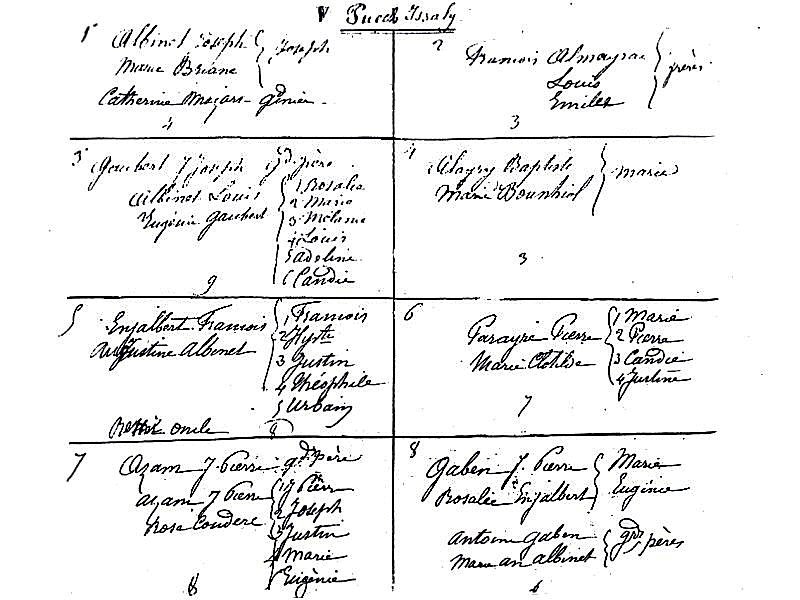 V Puech Issaly
1 Albinet Joseph Joseph
Marie Briane
Catherine Mazars
4
2 François Almayrac frères
Louis
Emile
3
3 Gaubert J Joseph gd père
Albinet Louis
Eugénie Gaubert
1 Rosalie
2 Marie
3 Mélanie
4 Louis
5 Adeline
6 Candie
9
4 Baptiste Marie
Marie
3
5 Enjalbert François
Augustine Albinet
1 François
2 Hypte
3 Justin
4 Théophile
5 Urbain
oncle 8
6 Parayre Pierre
Marie Clotilde
1 Marie
2 Pierre
3 Candie
4 Justine
7
7 Azam J Pierre gd père
Azam J Pierre
Rose Couderc
1 J Pierre
2 Joseph
3 Justin
4 Marie
5 Eugénie
8
8 Gaben J. Pierre Marie
Rosalie Enjalbert Eugénie
Antoine Gaben gds pères
Marie an Albinet
6